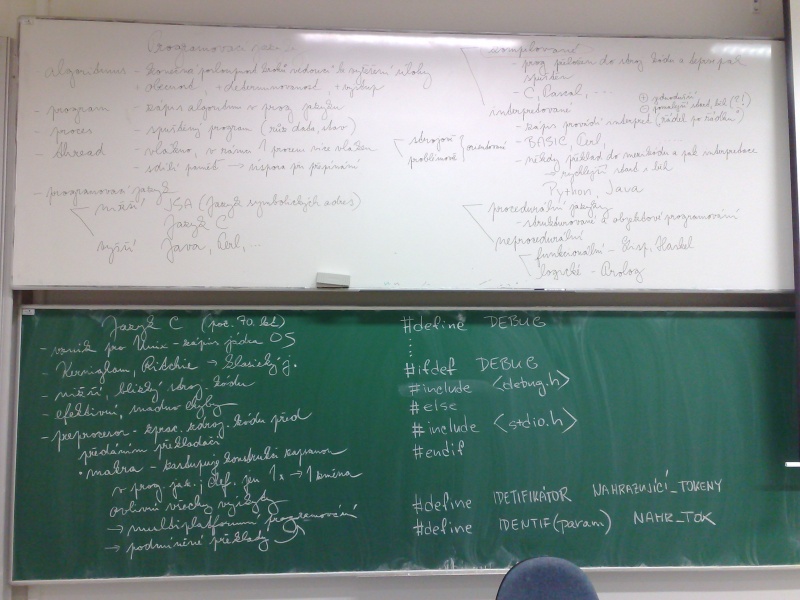 Programovací
algoritmus - konečná posloupnost kroků vedoucí k vyřešení úlohy
+ obecnost, + determinovanost, + výstup
- program - zápis algoritmu v prog. jazyku
- proces - spuštěný program (různ. data, stav)
- thread - vlákno, v rámci 1 procesu více vláken
- sdílí paměť →
- programovací jazyky
nižší JSA (Jazyk symbolických adres)
Jazyk C
vyšší Java, Perl, ...
strojově
problémově
orientované
kompilované
- prog. přeložen do stroj. kódu a teprve pak
spuštěn
- C, Pascal, ...
interpretované
- zápis provádí interpret (řádek po řádku)
- BASIC, Perl,
- někdy překlad do mezikódu a pak interpretace
Python, Java
procedurální jazyky
- strukturované a objektové programování
neprocedurální
funkcionální - Lisp, Haskel
logické - Prolog
Jazyk C (poč. 70. let)
- vznik pro Unix - zápis jádra OS
- Kernighan, Ritchie → klasický j.
- nižší, blízký stroj. kódu
- efektivní, snadno chyby
- preprocesor - zprac. zdroj. kódu před
předáním překladači
• makra - zastupují konstrukci zapsanou
v prog. jak. j. def. jen 1x → 1 změna
ovlivní všechny výskyty
→ multiplatformní programování
→ podmíněné překlady
#define DEBUG
#ifdef DEBUG
#include <debug.h>
#else
#include <stdio.h>
#endif
#define IDETIFIKÁTOR NAHRAZUJÍCÍ_TOKENY
#define IDENTIF(param) NAHR_TOK